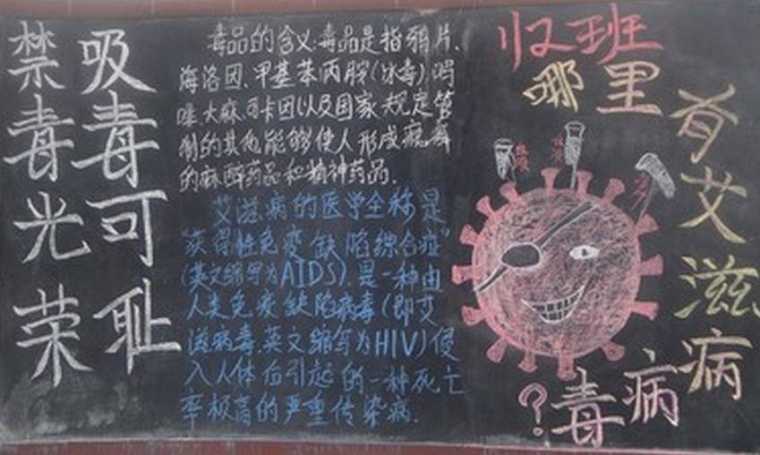 吸毒可耻
禁毒光荣
毒品的含义:毒品是指鸦片、
海洛因、甲基苯丙胺(冰毒)、吗
啡、大麻、可卡因以及国家规定管
制的其他能够使人形成瘾癖
的麻醉药品和精神药品.
艾滋病的医学全称是
"获得性免疫缺陷综合症"
(英文缩写为AIDS).是一种由
人类免疫缺陷病毒(即艾
滋病毒.英文缩写为HIV)侵
入人体后引起的一种死亡
率极高的严重传染病.
归班
哪里
有艾滋病
病毒?